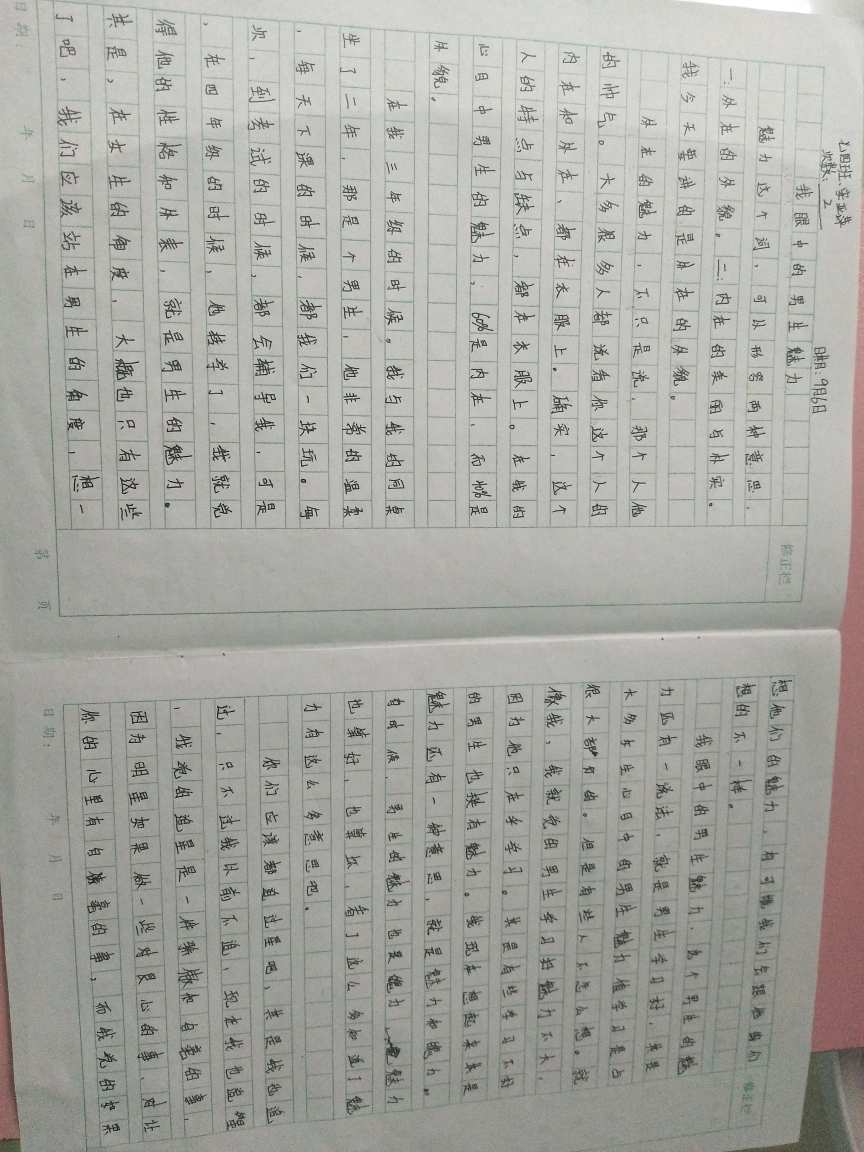 七四班
次数: 2
日期: 9月6日
我眼中的男生魅力
魅力这个词，可以形容两种意思.
一:外在的外貌。二:内在的美丽与朴实。
我今天要讲的是外在的外貌。
外在的魅力，不只是说，那个人他
的帅气。大多很多人都说看你这个人的
内在和外在、都在衣服上。确实，这个
人的特点与缺点，都在衣服上。在我的
心目中男生的魅力，60%是内在，而%是
外貌。
在我三年级的时候。我与我的同桌
坐了二年，那是个男生，他非常的温柔
，每天下课的时候，都我们一块玩。每
次，到考试的时候，都会辅导我，可是
，在四年级的时候，他转学了，我就觉
得他的性格和外表，就是男生的魅力。
其是，在女生的角度，大概也只有这些
了吧，我们应该站在男生的角度，想一
想他们的魅力，有可能我们会跟他们
想的不一样。
我眼中的男生魅力，为个男生的魅
力还有一说法，就是男生学习好，其是
大多女生心目中的男生魅力值学习是占
很大部分的。但是有些人不怎么想。就
像我，我就觉的男生学习好魅力不大，
因为他只在乎学习。其是有些学习不好
的男生也挺有魅力。我现在想起来真是
魅力还有一种意思，就是魅力和魄力。
有时候，男生的魅力也是魄力，魅力
也算好，也算坏，看了这么多知道了魅
力有这么多意思吧。
你们应该都追过星吧，其是我也追
过，只不过我以前不追，现在我也追星
，我觉的追星是一件骄傲和自豪的事，
因为明星如果做一些对良心的事、对让
你的心里有自豪的事，而我觉的如果
修正栏
日期: 年 月 日
第 页
修正栏
日期: 年 月 日